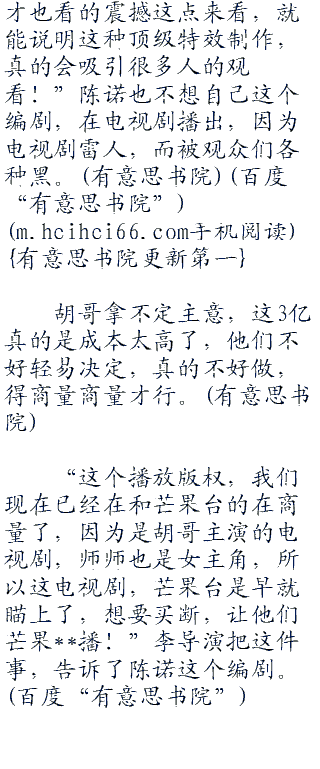 才也看的震撼这点来看，就
能说明这种顶级特效制作，
真的会吸引很多人的观
看！”陈诺也不想自己这个
编剧，在电视剧播出，因为
电视剧雷人，而被观众们各
种黑。(有意思书院)(百度
“有意思书院”)
(m.hcihci66.com手机阅读)
{有意思书院更新第一}
胡哥拿不定主意，这3亿
真的是成本太高了，他们不
好轻易决定，真的不好做，
得商量商量才行。(有意思书
院)
“这个播放版权，我们
现在已经在和芒果台的在商
量了，因为是胡哥主演的电
视剧，师师也是女主角，所
以这电视剧，芒果台是早就
瞄上了，想要买断，让他们
芒果**播！”李导演把这件
事，告诉了陈诺这个编剧。
(百度“有意思书院”)